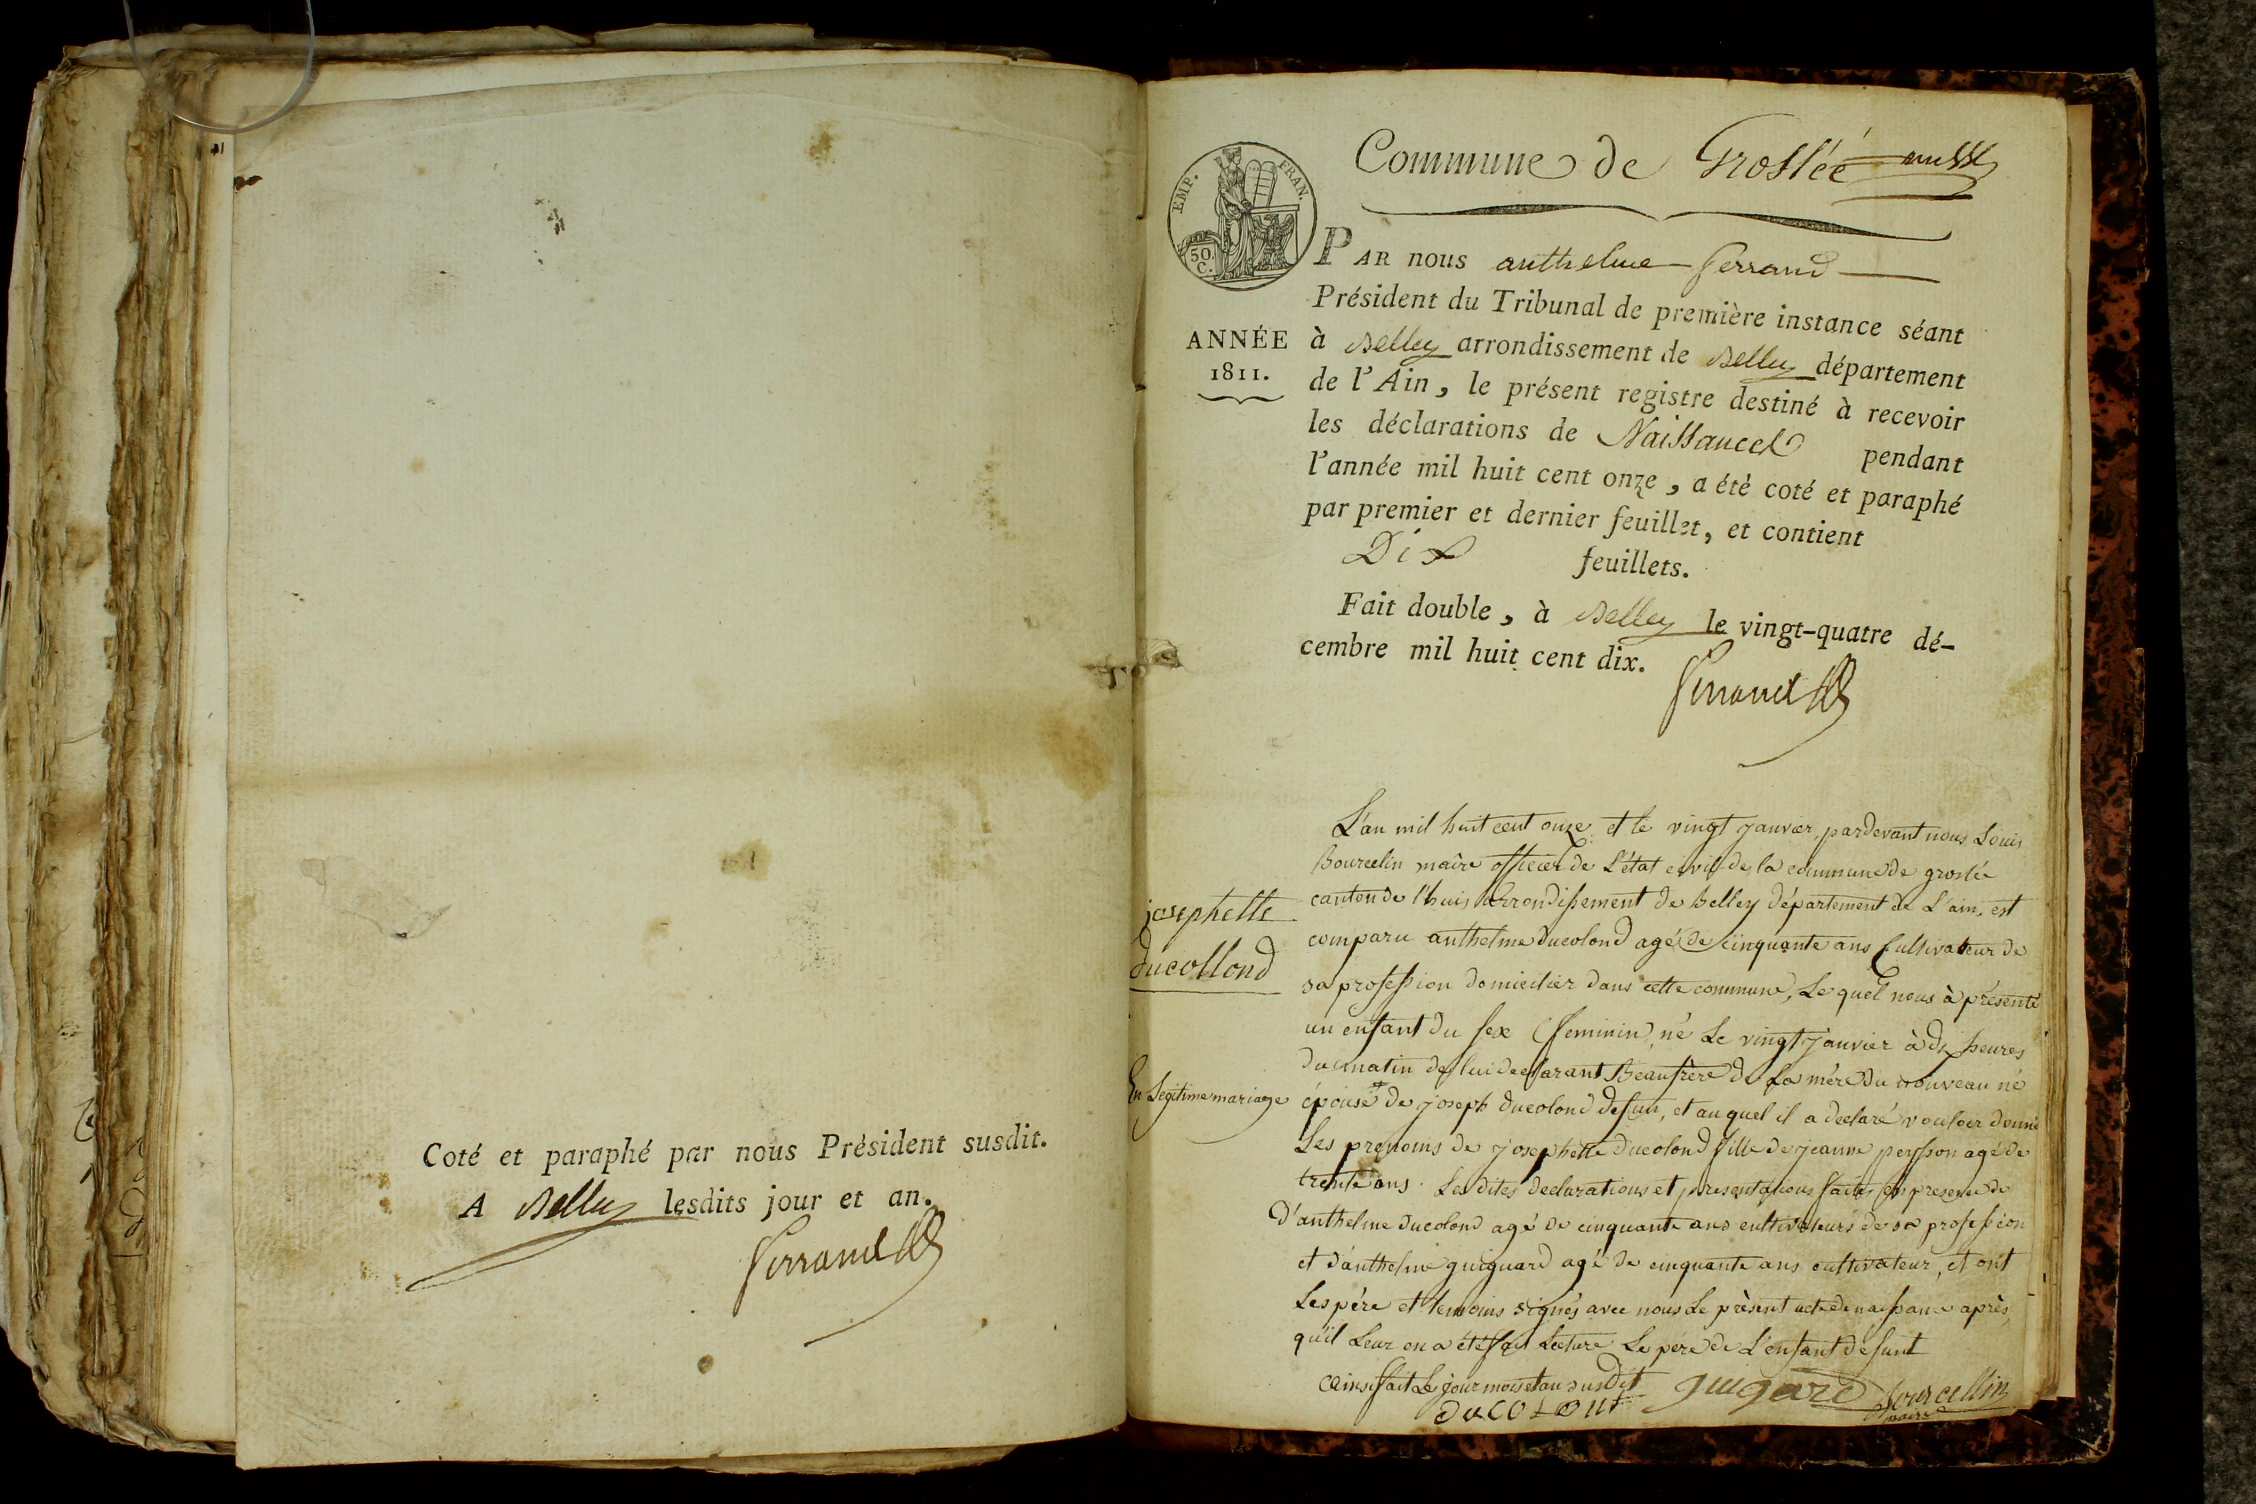 Coté et paraphé par nous Président susdit.
A Belley lesdits jour et an.
Ferrand
Commune de Groslée
EMP. FRAN.
50. C.
ANNÉE
1811.
PAR nous anthelme Ferrand
Président du Tribunal de première instance séant
à Belley arrondissement de Belley département
de l'Ain, le présent registre destiné à recevoir
les déclarations de Naissances pendant
l'année mil huit cent onze, a été coté et paraphé
par premier et dernier feuillet, et contient
Dix feuillets.
Fait double, à Belley le vingt-quatre dé-
cembre mil huit cent dix.
Ferrand
josephette
ducollond
En Legitime mariage
L'an mil huit cent onze et le vingt janvier, pardevant nous Louis
Bourcelin maire officier de L'état civil de la commune de groslée
canton de l'huis arrondissement de Belley département de L'ain, est
comparu anthelme ducolond agé de cinquante ans Cultivateur de
sa profession domicilier dans cette commune, Le quel nous à présenté
un enfant du sex feminin, né Le vingt janvier à dix heures
du matin de lui declarant Beaufrère de La mère du nouveau né
épouse de joseph ducolond defunt, et au quel il a declaré vouloir donné
Les prenoms de josephette ducolond fille de jeanne peysson agé de
trente ans. Les dites declarations et presentations faites en presence de
D'anthelme ducolond agé de cinquante ans cultivateurs de sa profession
et d'anthelme guiguard agé de cinquante ans cultivateur, et ont
Les pére et temoins signés avec nous Le présent acte de naissance après,
qu'il Leur en a été fait Lecture Le pere de L'enfant défunt
ainsi fait Le jour mois et an susdit
ducolont guigard Bourcellin
maire